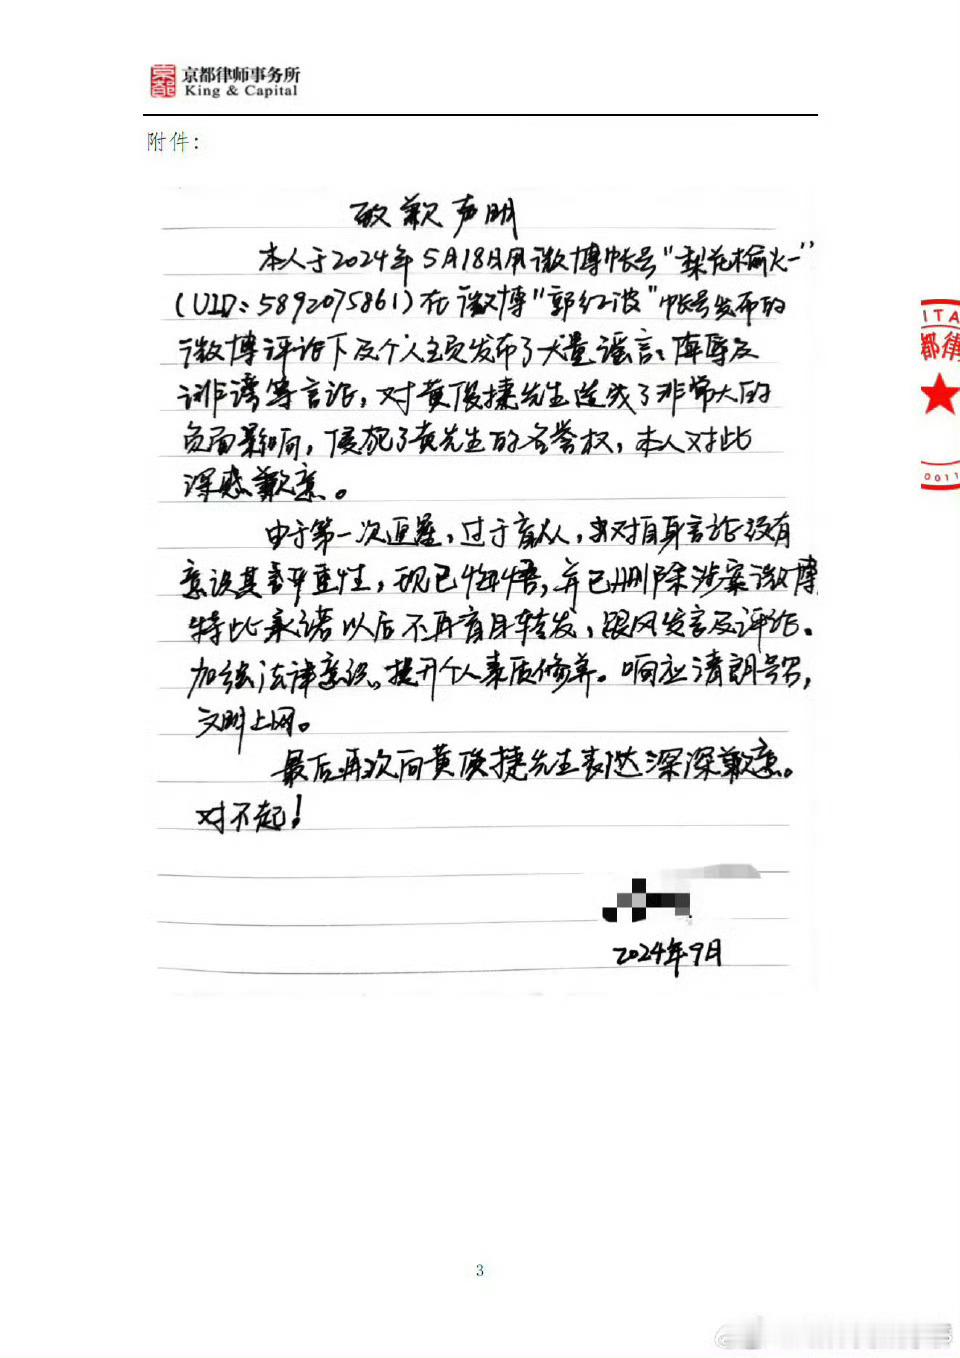 京都律师事务所
King & Capital
附件：
致歉声明
本人于2024年5月18日用微博帐号“梨花榆火一”
（UID：5892075861）在微博“郭红波”帐号发布的
微博评论下及个人主页发布了大量谣言、侮辱及
诽谤等言论，对黄俊捷先生造成了非常大的
负面影响，侵犯了黄先生的名誉权，本人对此
深感歉意。
由于第一次追星，过于盲从，对自身言论没有
意识其严重性，现已悔悟，并已删除涉案微博，
特此承诺以后不再盲目转发、跟风发言及评论。
加强法律意识，提升个人素质修养。响应清朗号召，
文明上网。
最后再次向黄俊捷先生表达深深歉意。
对不起！
2024年9月
ITA
都律
0011
3